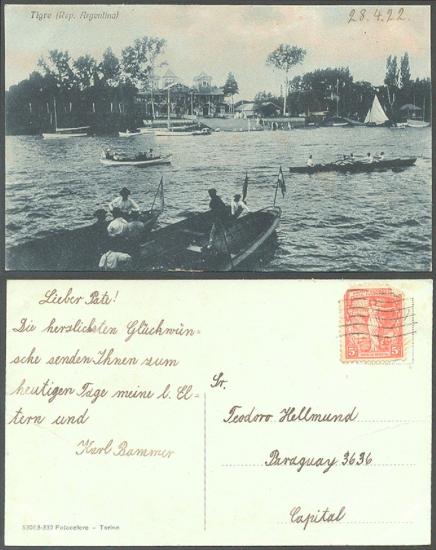 Tigre (Rep. Argentina)
28.4.22.
Lieber Pate!
Die herzlichsten Glückwün-
sche senden Ihnen zum
heutigen Tage meine l. El-
tern und
Karl Bammer
Sr.
Teodoro Hellmund
Paraguay 3636
Capital
5 5
Fotocelere - Torino